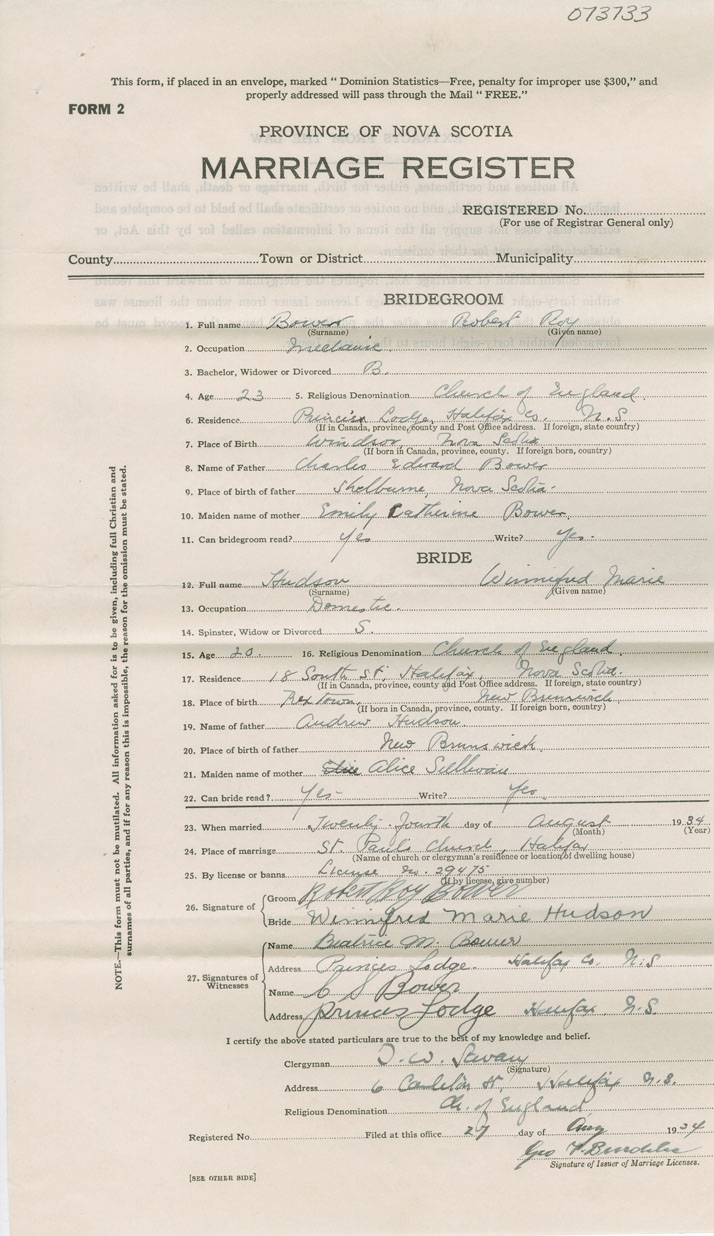 073733
This form, if placed in an envelope, marked "Dominion Statistics—Free, penalty for improper use $300," and
properly addressed will pass through the Mail "FREE."
FORM 2
PROVINCE OF NOVA SCOTIA
MARRIAGE REGISTER
REGISTERED No.
(For use of Registrar General only)
County Town or District Municipality
BRIDEGROOM
1. Full name Bower Robert Roy
(Surname) (Given name)
2. Occupation Mechanic
3. Bachelor, Widower or Divorced B.
4. Age 23 5. Religious Denomination Church of England
6. Residence Princes Lodge, Halifax Co. N.S
(If in Canada, province, county and Post Office address. If foreign, state country)
7. Place of Birth Windsor, Nova Scotia
(If born in Canada, province, county. If foreign born, country)
8. Name of Father Charles Edward Bower
9. Place of birth of father Shelburne, Nova Scotia.
10. Maiden name of mother Emily Catherine Bower.
11. Can bridegroom read? Yes Write? Yes.
BRIDE
12. Full name Hudson Winnifred Marie
(Surname) (Given name)
13. Occupation Domestic.
14. Spinster, Widow or Divorced S.
15. Age 20. 16. Religious Denomination Church of England
17. Residence 18 South St, Halifax, Nova Scotia.
(If in Canada, province, county and Post Office address. If foreign, state country)
18. Place of birth Rextown, New Brunswick
(If born in Canada, province, county. If foreign born, country)
19. Name of father Andrew Hudson.
20. Place of birth of father New Brunswick.
21. Maiden name of mother Alice Sullivan
22. Can bride read? Yes- Write? Yes.
23. When married Twenty-fourth day of August 1934
(Month) (Year)
24. Place of marriage St. Paul's Church, Halifax
(Name of church or clergyman's residence or location of dwelling house)
25. By license or banns License No. 29475
(If by license, give number)
26. Signature of
Groom Robert Roy Bower
Bride Winnifred Marie Hudson
27. Signatures of Witnesses
Name Beatrice M. Bower
Address Princes Lodge. Halifax Co. N.S
Name C S Bower
Address Princes Lodge Halifax N.S.
I certify the above stated particulars are true to the best of my knowledge and belief.
Clergyman D. W. Swan
(Signature)
Address 6 Carleton St, Halifax N.S.
Religious Denomination Ch. of England
Registered No. Filed at this office 27 day of Aug 1934
Geo F.
Signature of Issuer of Marriage Licenses.
[SEE OTHER SIDE]
NOTE.—This form must not be mutilated. All information asked for is to be given, including full Christian and
surnames of all parties, and if for any reason this is impossible, the reason for the omission must be stated.